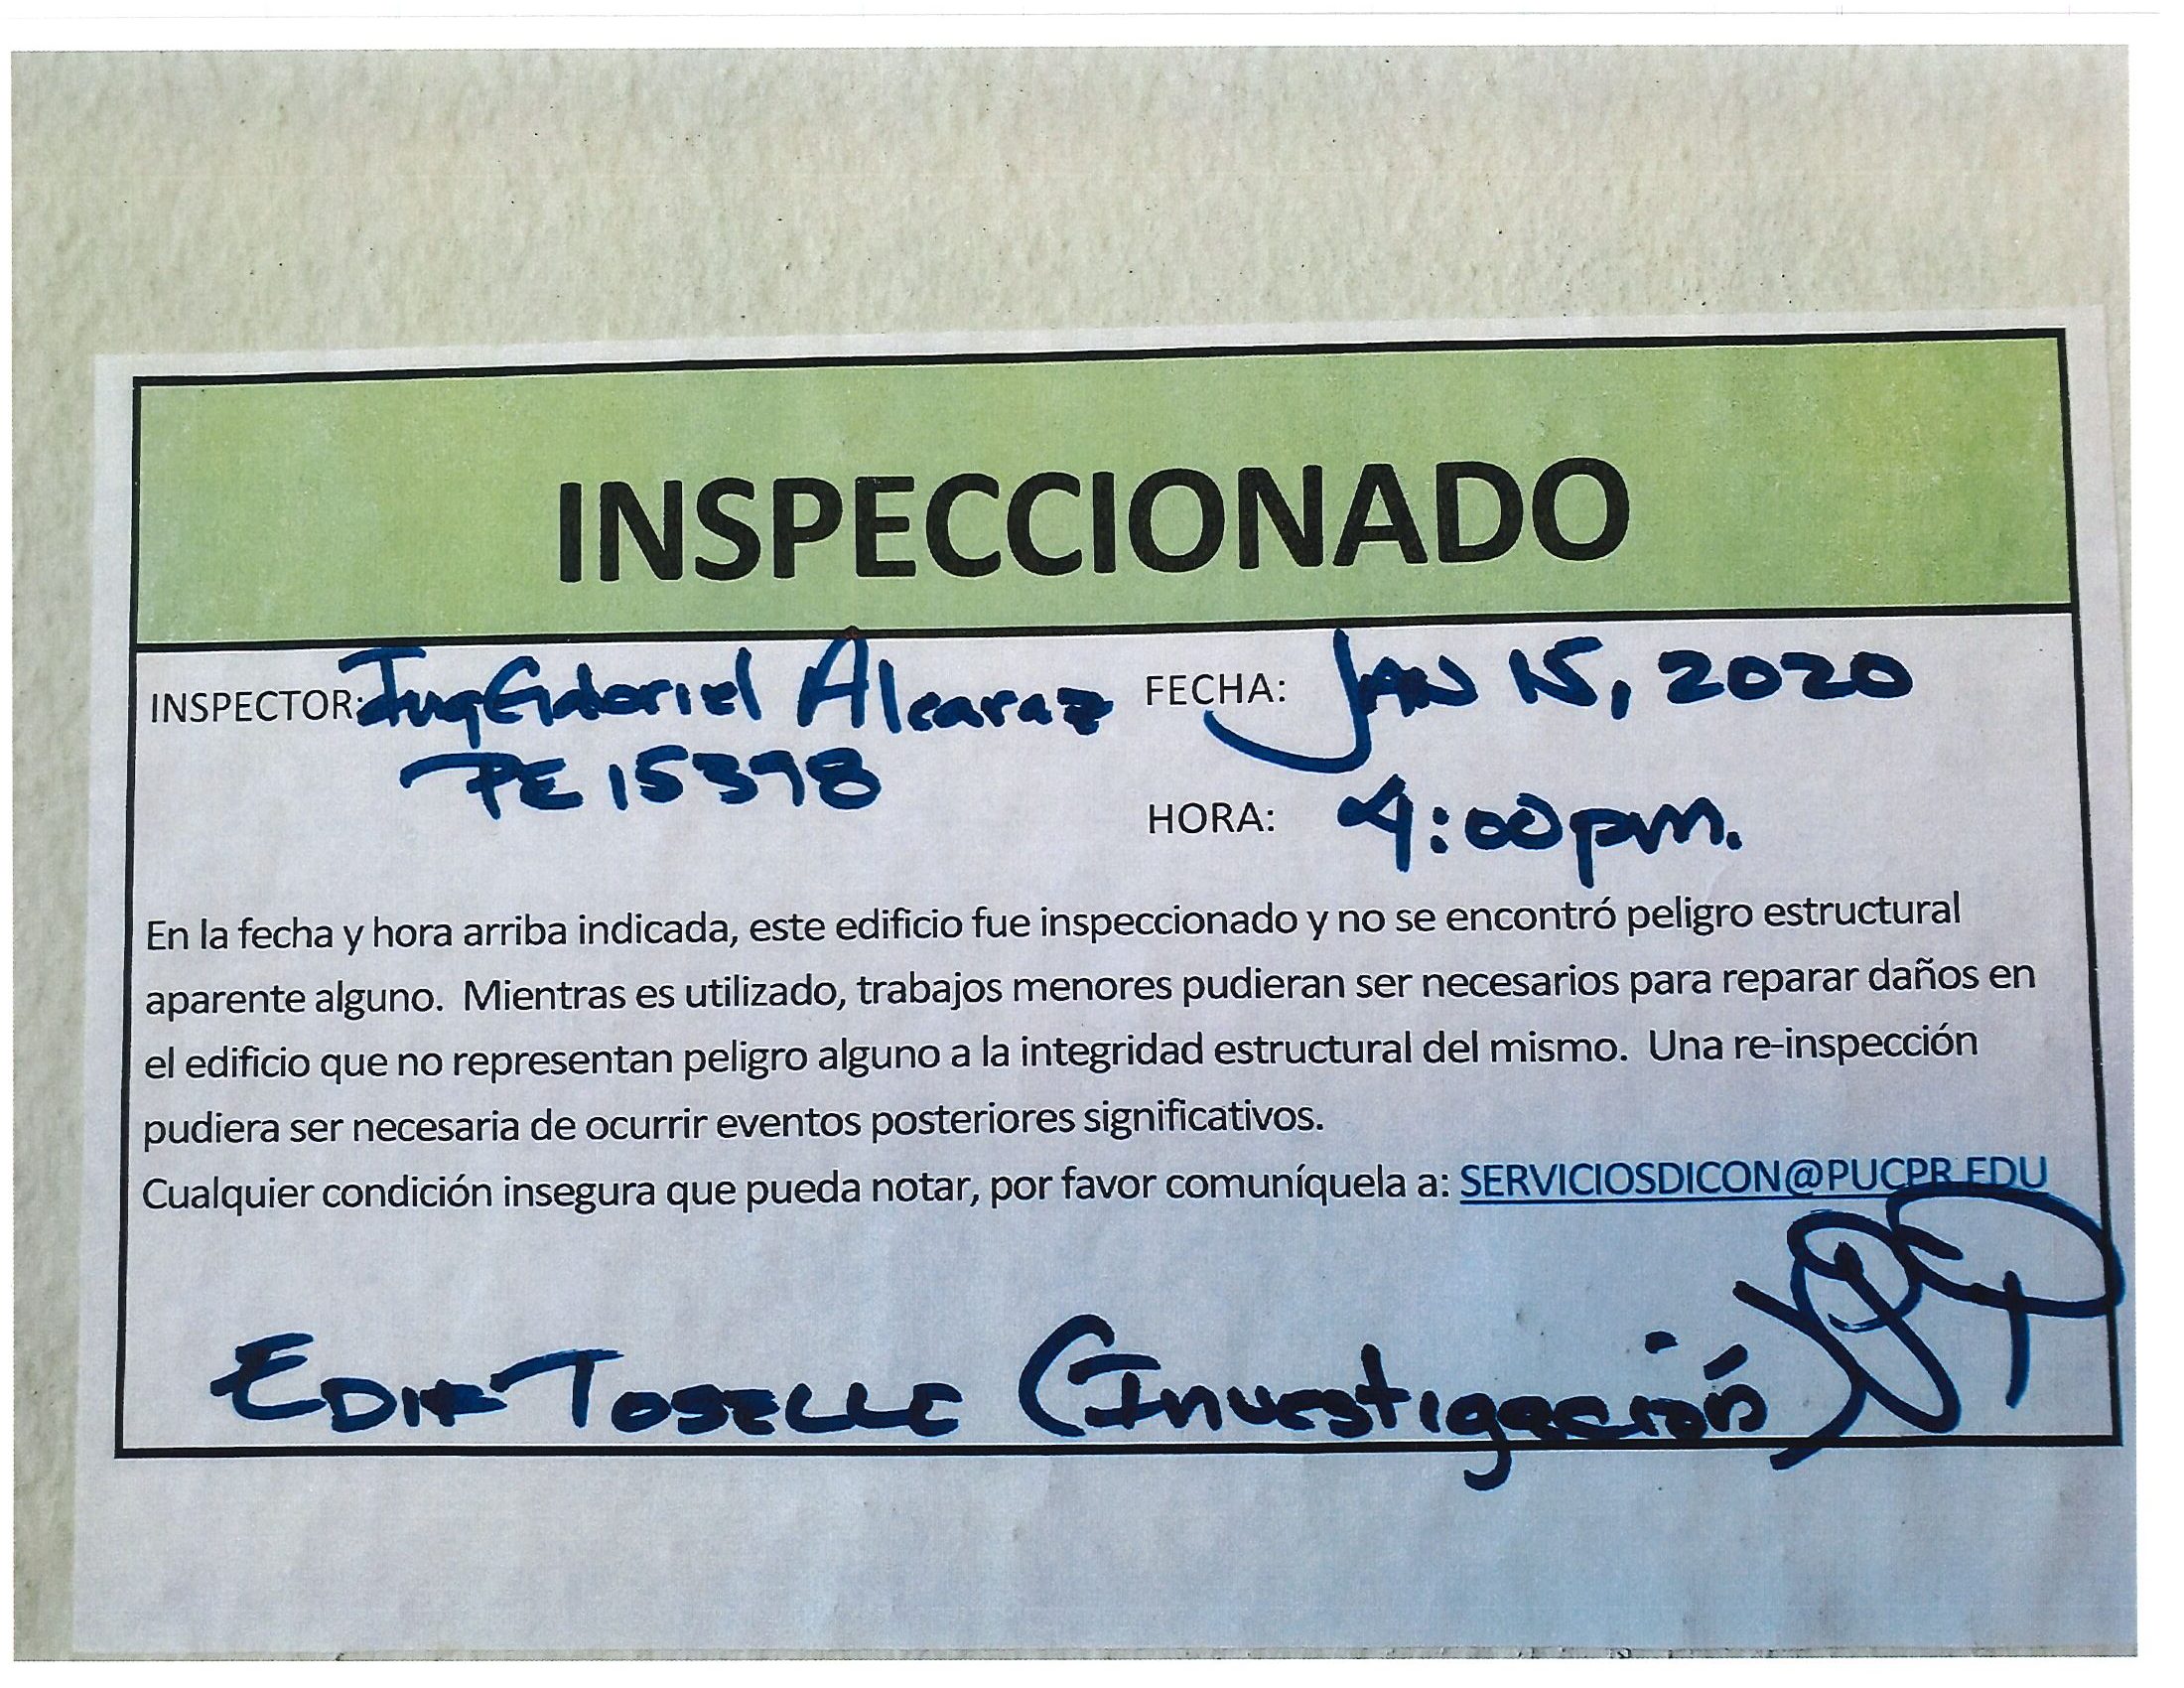 INSPECCIONADO
INSPECTOR: Ing Gabriel Alcaraz FECHA: JAN 15, 2020
PE 15398
HORA: 4:00pm.
En la fecha y hora arriba indicada, este edificio fue inspeccionado y no se encontró peligro estructural
aparente alguno. Mientras es utilizado, trabajos menores pudieran ser necesarios para reparar daños en
el edificio que no representan peligro alguno a la integridad estructural del mismo. Una re-inspección
pudiera ser necesaria de ocurrir eventos posteriores significativos.
Cualquier condición insegura que pueda notar, por favor comuníquela a: SERVICIOSDICON@PUCPR.EDU
EDIF TOSELLC (Investigación)